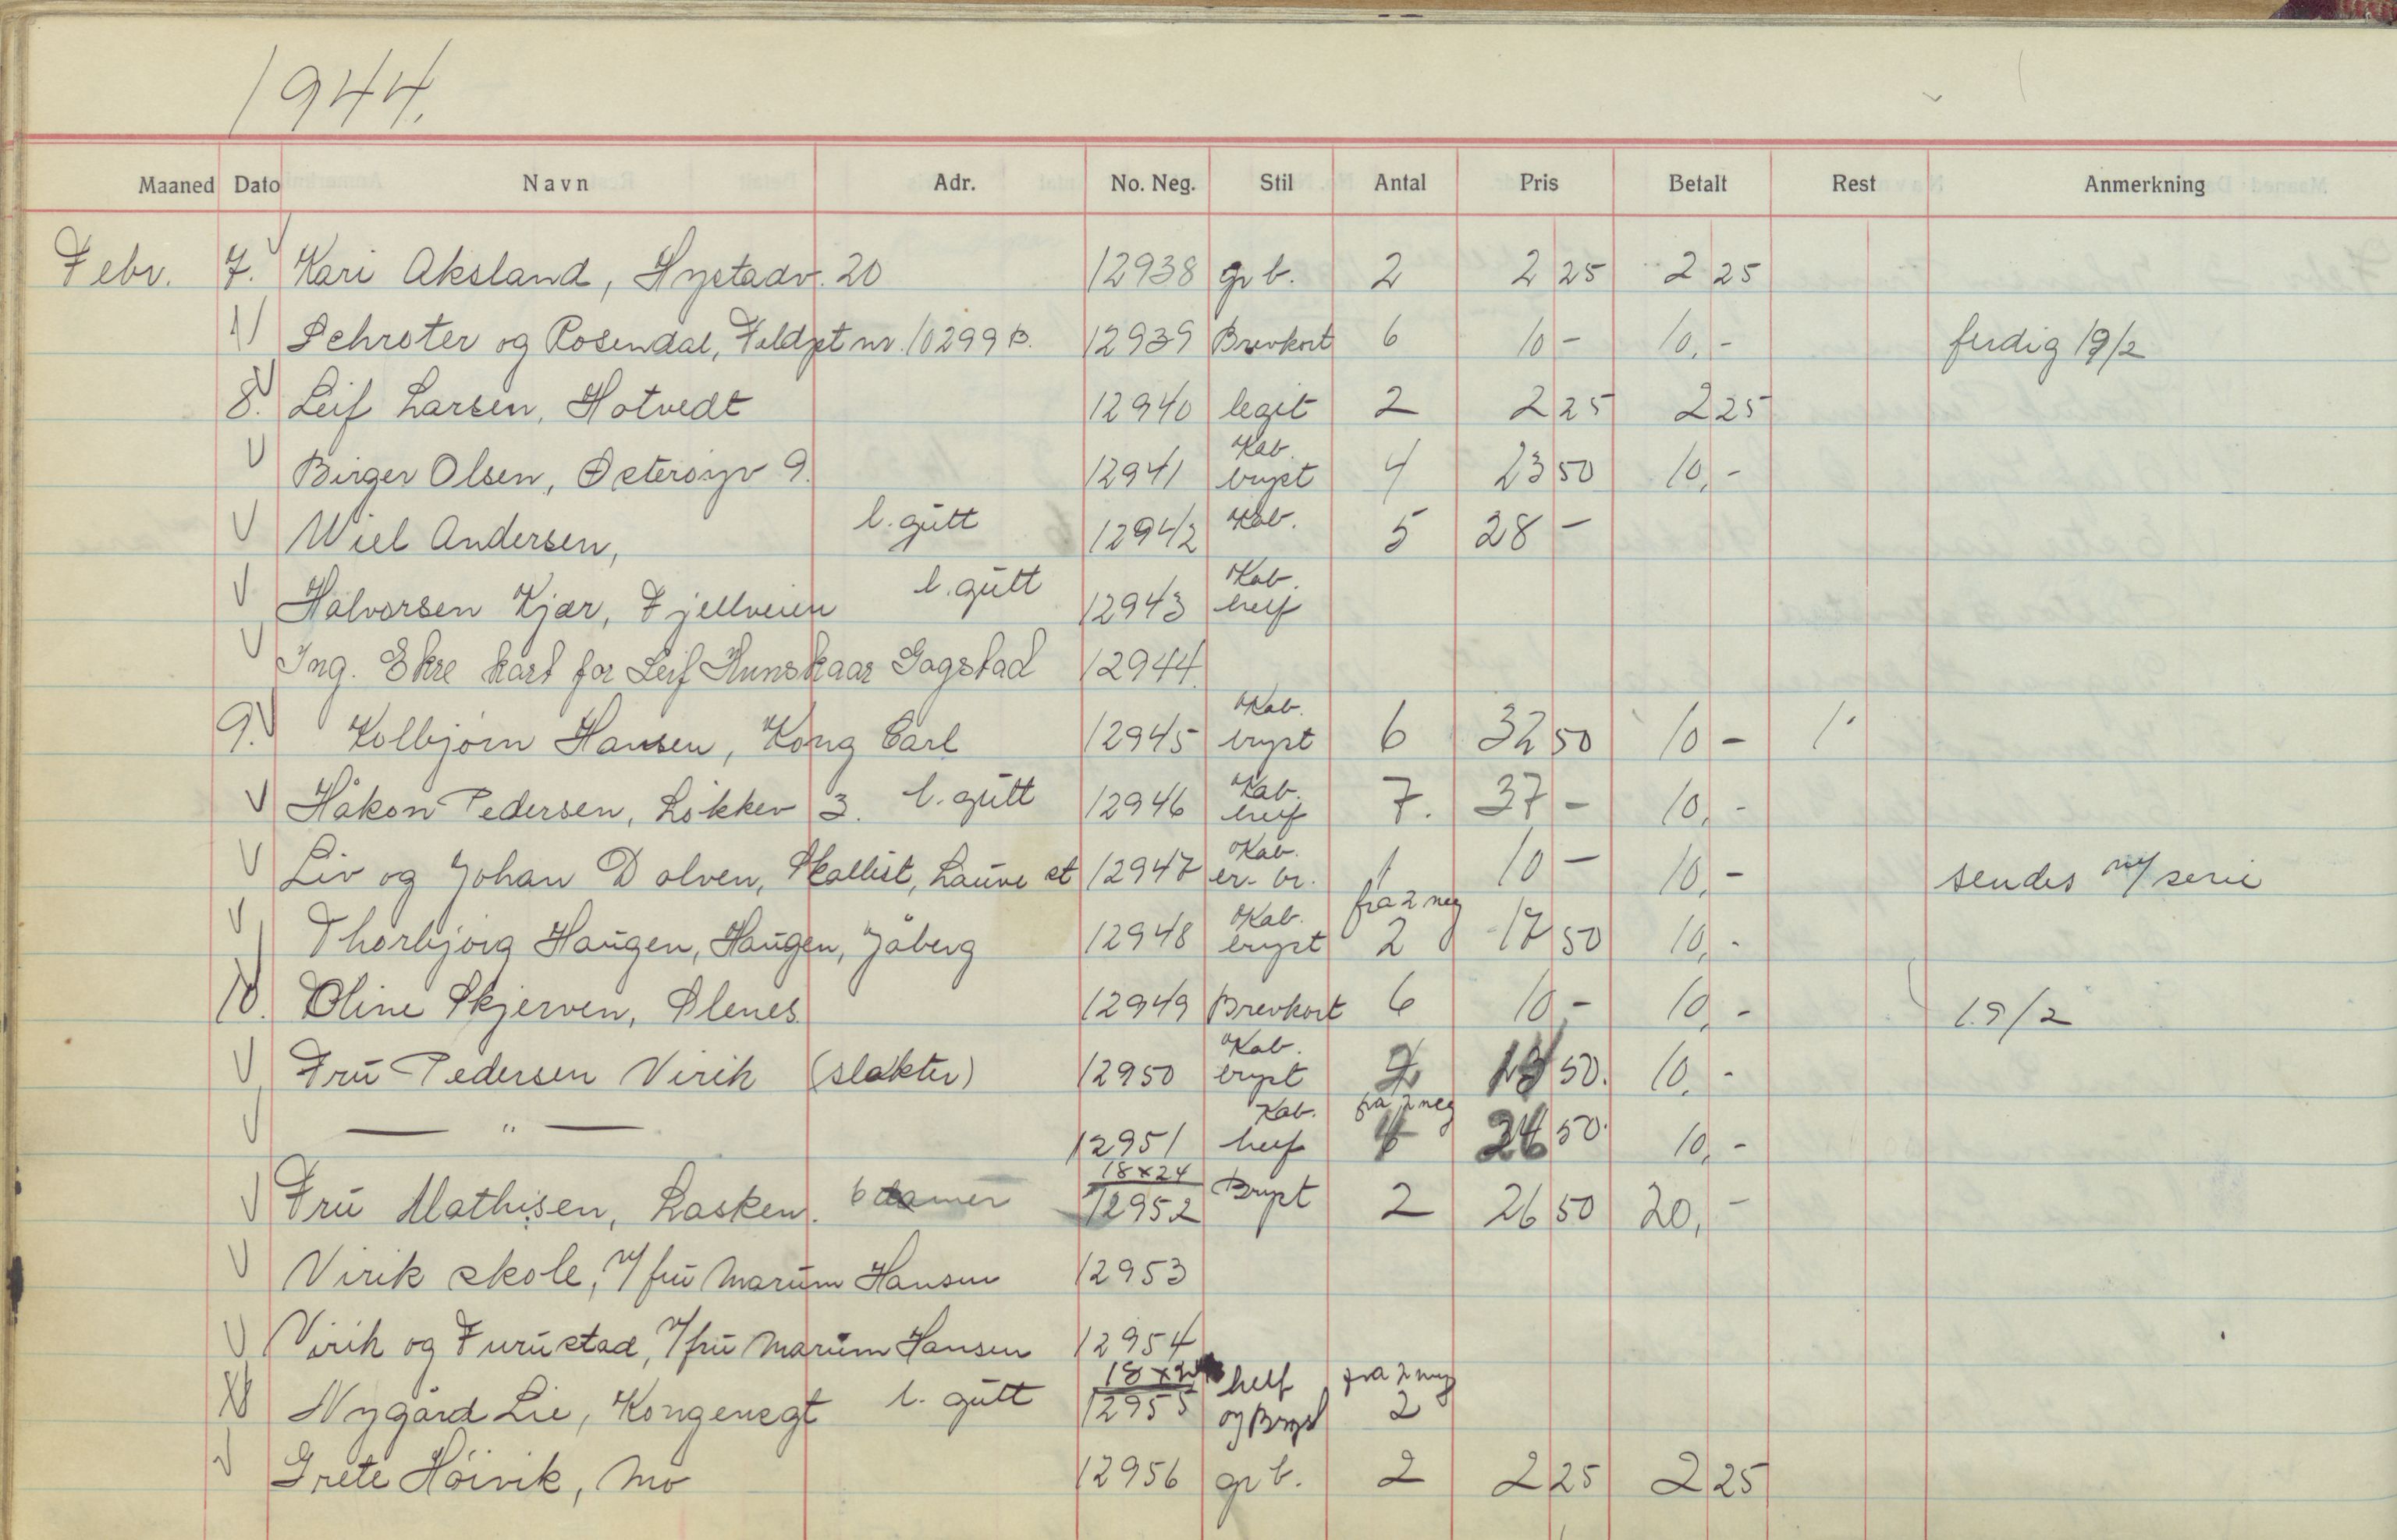 1944.
Maaned Dato Navn Adr. No. Neg. Stil Antal Pris Betalt Rest Anmerkning
Febr. 7. Kari Aksland, Hystadv. 20 12938 gr b. 2 2 25 2 25
Schroter og Rosendal, Feldpt nr. 10299 B. 12939 Brevkort 6 10 - 10,- ferdig 19/2
8. Leif Larsen, Hotvedt 12940 legit 2 2 25 2 25
Birger Olsen, Østerøyv 9. 12941 Kab. bryst 4 23 50 10,-
Wiel Andersen, l. gutt 12942 Kab. 5 28 -
Halvorsen Kjær, Fjellveien l. gutt 12943 Kab. helf
Ing. Ekre kart for Leif Hunskaar Gogstad 12944.
9. Kolbjørn Hansen, Kong Carl 12945 Kab. bryst 6 32 50 10 -
Håkon Pedersen, Løkkev 3. l. gutt 12946 Kab. helf 7. 37 - 10,-
Liv og Johan Dolven, Skallist, Lauve st 12947 Kab. er. br. 1 10 - 10,- sendes m/ serie
Thorbjørg Haugen, Haugen, Jåberg 12948 Kab. bryst fra 2 neg 2 17 50 10,-
10. Oline Skjerven, Slenes 12949 Brevkort 6 10,- 10,- 19/2
Fru Pedersen Virik (slakter) 12950 Kab. bryst 50. 10,-
— " — 12951 Kab. helf fra 2 neg 50. 10,-
Fru Mathisen, Lasken. 6 damer 18x24 12952 Bryst 2 26 50 20,-
Virik skole, v/ fru Marum Hansen 12953
Virik og Furustad, v/ fru Marum Hansen 12954
Nygård Lie, Kongensgt l. gutt 18x24 12955 helf og Bryst fra 2 neg 2
Grete Høivik, Mo 12956 gr b. 2 2 25 2 25